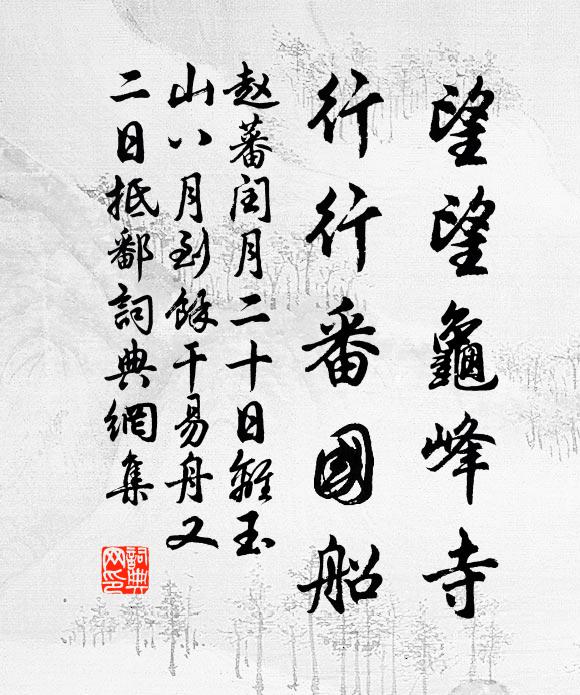 望望龜峰寺
行行番國船
赵蕃閏月二十日離玉
山八月到餘干易舟又
二日抵鄱詞典網集
詞典网印